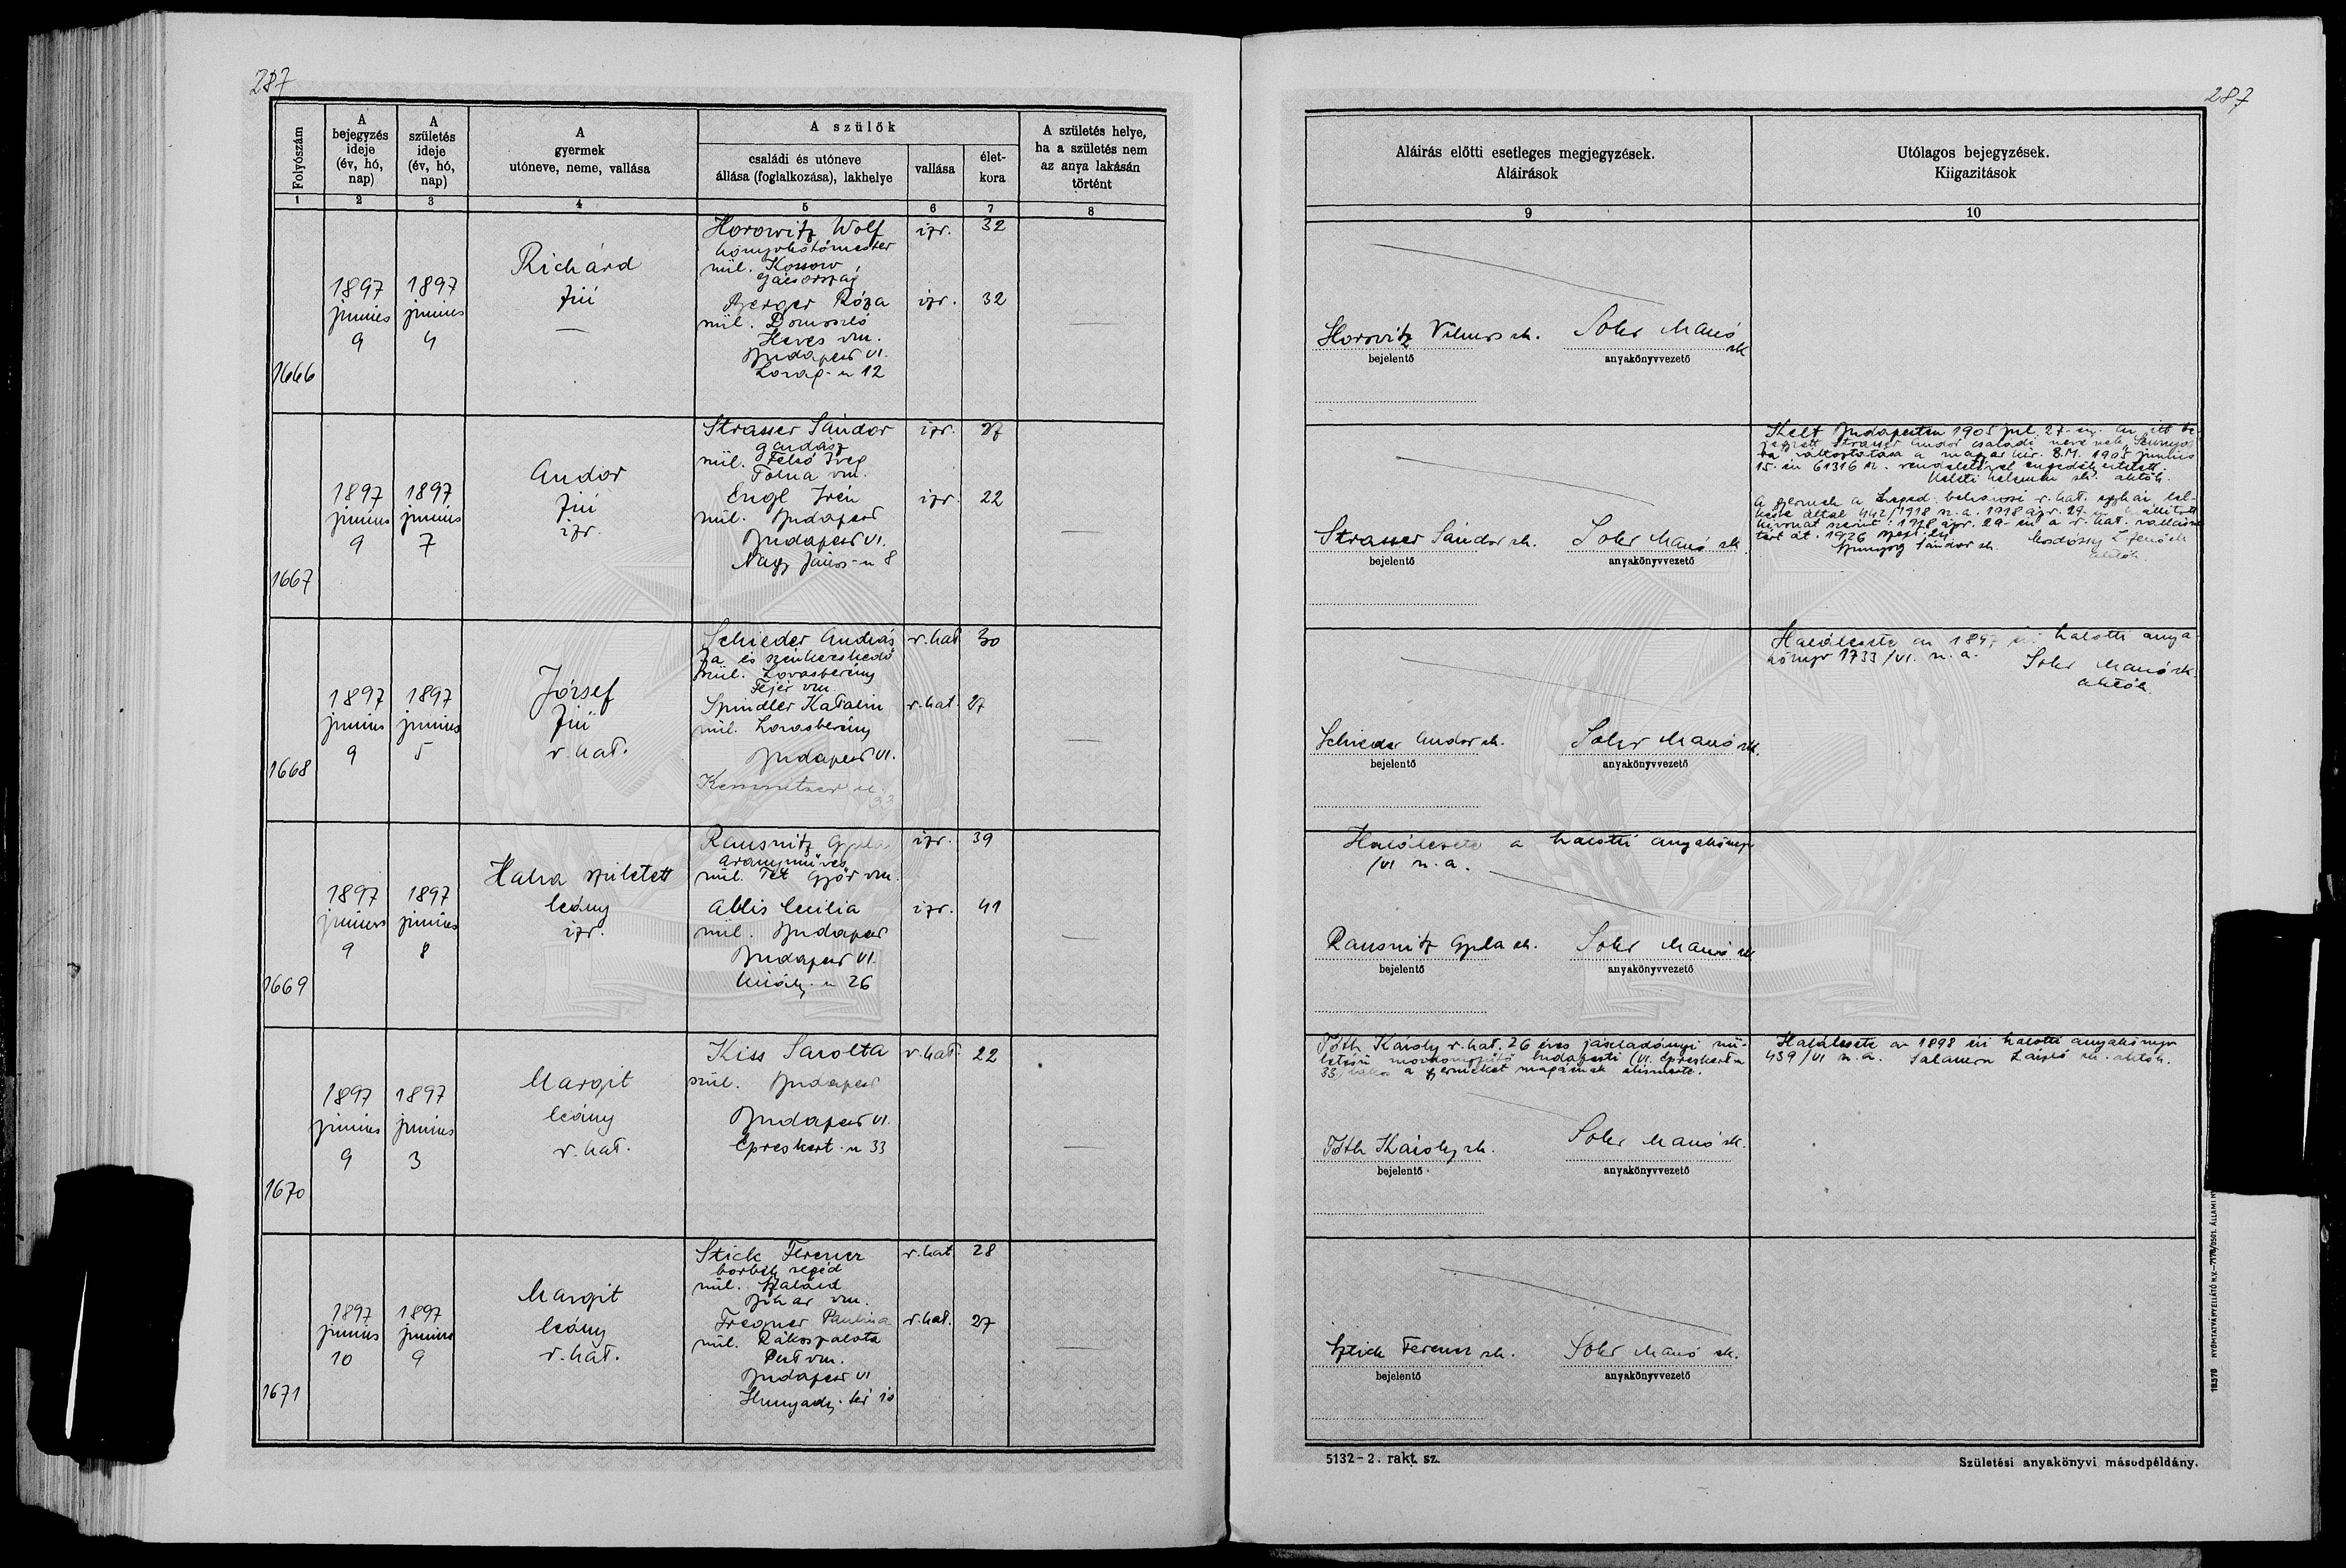 287
Folyószám
A bejegyzés ideje (év, hó, nap)
A születés ideje (év, hó, nap)
A gyermek utóneve, neme, vallása
A szülők
családi és utóneve állása (foglalkozása), lakhelye
vallása
életkora
A születés helye, ha a születés nem az anya lakásán történt
1
2
3
4
5
6
7
8
1666
1897 junius 9
1897 junius 4
Richárd
fiú
Horowitz Wolf
izr.
32
könyvkötőmester
szül. Kossow
Gácsország
Berger Róza
izr.
32
szül. Domoszló
Heves vm.
Budapest VI.
Lovag-u 12
1667
1897 junius 9
1897 junius 7
Andor
fiú
izr.
Strasser Sándor
izr.
27
gazdász
szül. Felső Ireg
Tolna vm.
Engl Irén
izr.
22
szül. Budapest
Budapest VI.
Nagy János-u 8
1668
1897 junius 9
1897 junius 5
József
fiú
r. kat.
Schieder András
r. kat
30
fa és szénkereskedő
szül. Lovasberény
Fejér vm
Spindler Katalin
r. kat.
27
szül. Lovasberény
Budapest VI.
Kemnitzer u.
33
1669
1897 junius 9
1897 junius 8
Halva született
leány
izr.
Rausnitz Gyula
izr.
39
aranyműves
szül. Tét Győr vm.
Abeles Cecilia
izr.
41
szül. Budapest
Budapest VI.
Király-u 26
1670
1897 junius 9
1897 junius 3
Margit
leány
r. kat.
Kiss Sarolta
r. kat.
22
szül. Budapest
Budapest VI.
Epreskert-u 33
1671
1897 junius 10
1897 junius 9
Margit
leány
r. kat.
Stick Ferencz
r. kat
28
borbély segéd
szül. Szalárd
Bihar vm.
Paulina
r. kat.
27
szül. Rákospalota
Pest vm.
Budapest VI
Hunyady-tér 10
287
Aláírás előtti esetleges megjegyzések.
Aláírások
Utólagos bejegyzések.
Kiigazitások
9
10
Horovitz Vilmos sk.
Sohr Manó sk
bejelentő
anyakönyvvezető
Kelt Budapesten 1905 jul. 27-én. Az itt be
jegyzett Strasser Andor családi nevének "Sz
ra változtatása a magyar kir. B.M. 1905 junius
15-én 61316 sz. rendeletével engedélyeztetett.
Kelen sk. aktök.
A gyermek a Szeged r. kat. egyház lel-
késze által 442/1918 sz. a. 1918 ápr. 29-én kiállitott
kivonat szerint 1918 ápr. 29-én a r. kat. vallásra
tért át. 1926
Sándor sk.
Strasser Sándor sk.
Sohr Manó sk
bejelentő
anyakönyvvezető
Halálesete az 1897 évi halotti anya
könyv 1733/VI. sz. a.
Sohr Manó sk.
aktök.
Schieder Andor sk.
Sohr Manó sk.
bejelentő
anyakönyvvezető
Halálesete a halotti anyakönyv
/VI sz. a.
Rausnitz Gyula sk.
Sohr Manó sk
bejelentő
anyakönyvvezető
Tóth Károly r. kat. 26 éves jászladányi szü-
letésü budapesti (VI. Epreskert u
33) lakos a gyermeket magáénak elismerte.
Halálesete az 1898 évi halotti anyakönyv
439/VI sz. a. Salamon László sk. aktök.
Tóth Károly sk.
Sohr Manó sk.
bejelentő
anyakönyvvezető
Sztick Ferencz sk.
Sohr Manó sk.
bejelentő
anyakönyvvezető
5132-2. rakt. sz.
Születési anyakönyvi másodpéldány.